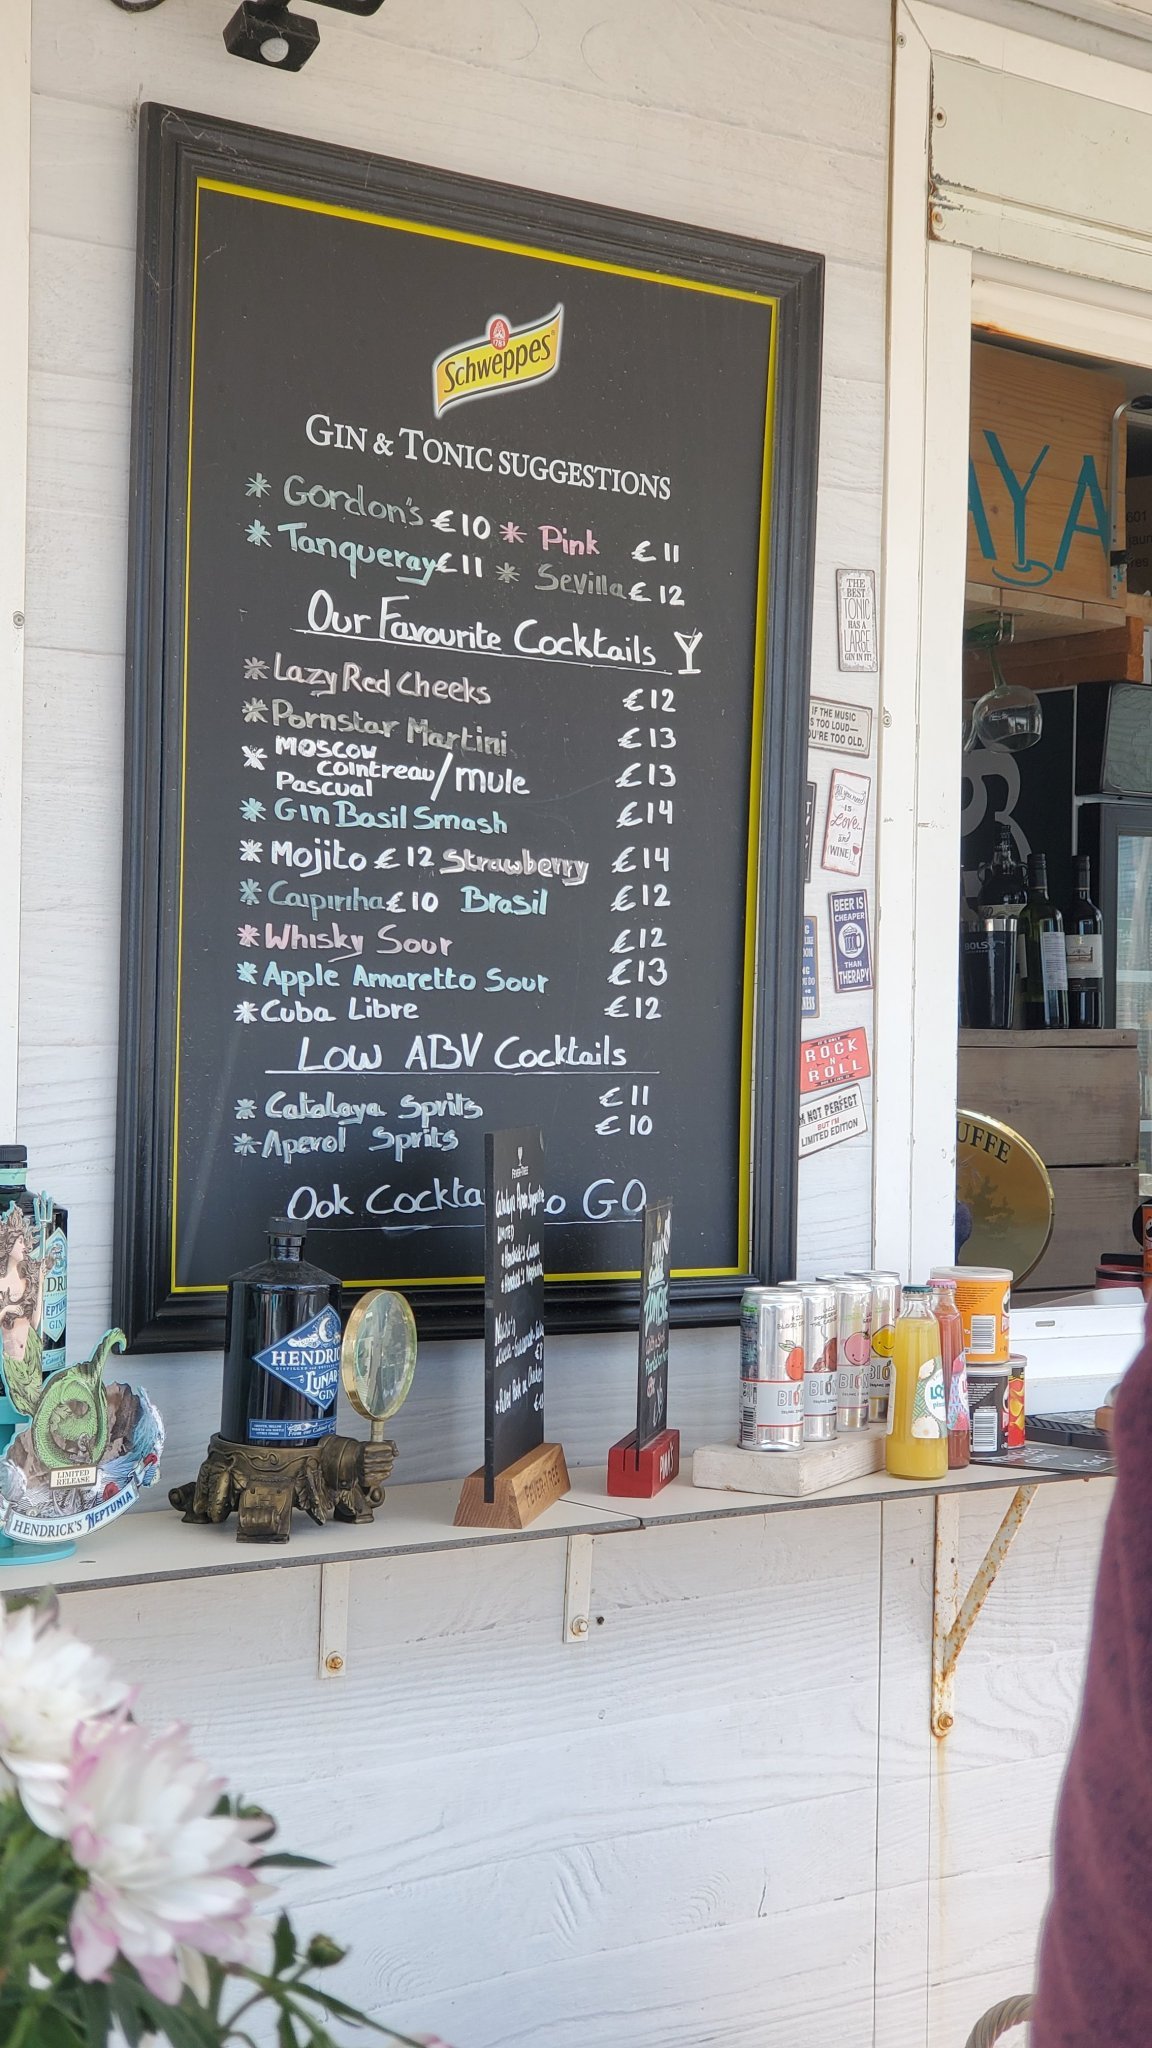 1783
Schweppes
GIN & TONIC SUGGESTIONS
* Gordon's €10 * Pink €11
* Tanqueray €11 * Sevilla €12
Our Favourite Cocktails
* Lazy Red Cheeks €12
* Pornstar Martini €13
* Moscow
Cointreau/mule €13
Pascual
* Gin Basil Smash €14
* Mojito €12 Strawberry €14
* Caipiriha €10 Brasil €12
* Whisky Sour €12
* Apple Amaretto Sour €13
* Cuba Libre €12
Low ABV Cocktails
* Catalaya Sprits €11
* Aperol Sprits €10
Ook Cockta o GO
AYA
601
THE
BEST
TONIC
HAS A
LARGE
GIN IN IT!
IF THE MUSIC
S TOO LOUD—
U'RE TOO OLD.
All you need
IS
Love..
and
(WINE)
BEER IS
CHEAPER
THAN
THERAPY
ROCK
N
ROLL
M NOT PERFECT
BUT I'M
LIMITED EDITION
BOLS
UFFE
FEVER-TREE
LIMITED
FEVER-TREE
HENDRI
LUNAR
GIN
NEPTU
GIN
LIMITED
RELEASE
HENDRICK'S NEPTUNIA
PIMM'S
BIO
BIO
BIO
BIO